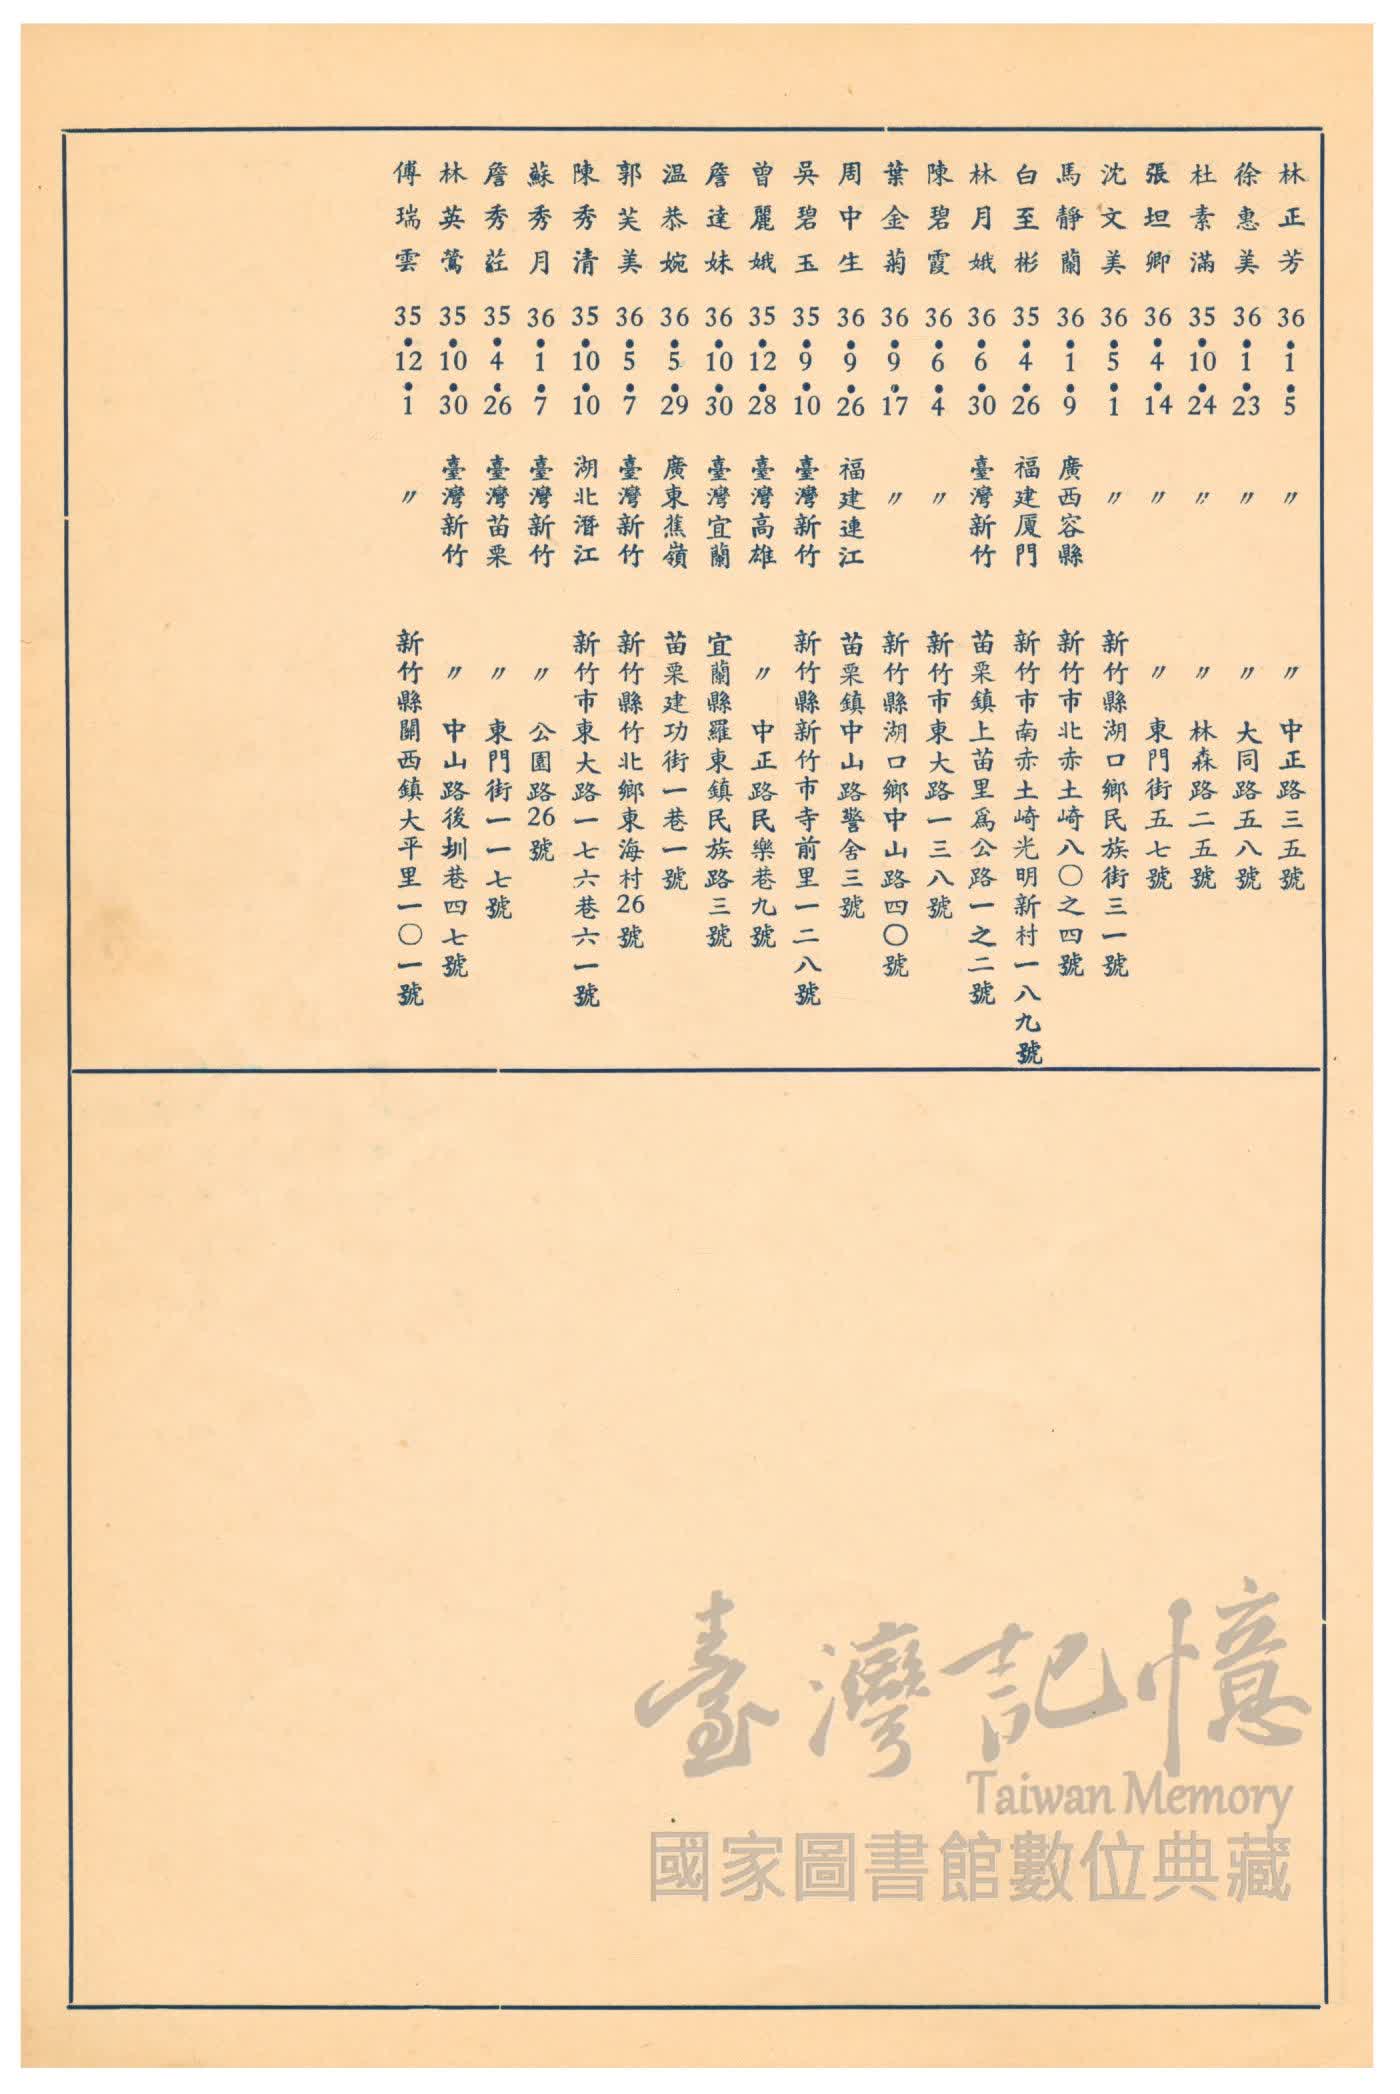 林正芳 36•1•5 〃 〃 中正路三五號
徐惠美 36•1•23 〃 〃 大同路五八號
杜素滿 35•10•24 〃 〃 林森路二五號
張坦卿 36•4•14 〃 〃 東門街五七號
沈文美 36•5•1 〃 新竹縣湖口鄉民族街三一號
馬靜蘭 36•1•9 廣西容縣 新竹市北赤土崎八〇之四號
白至彬 35•4•26 福建厦門 新竹市南赤土崎光明新村一八九號
林月娥 36•6•30 臺灣新竹 苗栗鎮上苗里爲公路一之二號
陳碧霞 36•6•4 〃 新竹市東大路一三八號
葉金菊 36•9•17 〃 新竹縣湖口鄉中山路四〇號
周中生 36•9•26 福建連江 苗栗鎮中山路警舍三號
吳碧玉 35•9•10 臺灣新竹 新竹縣新竹市寺前里一二八號
曾麗娥 35•12•28 臺灣高雄 〃 中正路民樂巷九號
詹達妹 36•10•30 臺灣宜蘭 宜蘭縣羅東鎮民族路三號
温恭婉 36•5•29 廣東蕉嶺 苗栗建功街一巷一號
郭芙美 36•5•7 臺灣新竹 新竹縣竹北鄉東海村26號
陳秀清 35•10•10 湖北潛江 新竹市東大路一七六巷六一號
蘇秀月 36•1•7 臺灣新竹 〃 公園路26號
詹秀 35•4•26 臺灣苗栗 〃 東門街一一七號
林英鶯 35•10•30 臺灣新竹 〃 中山路後圳巷四七號
傅瑞雲 35•12•1 〃 新竹縣關西鎮大平里一〇一號
臺灣記憶
Taiwan Memory
國家圖書館數位典藏